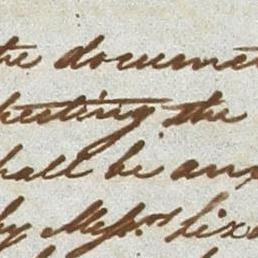 the docume
pecting the
hall be anx
by Messrs lix